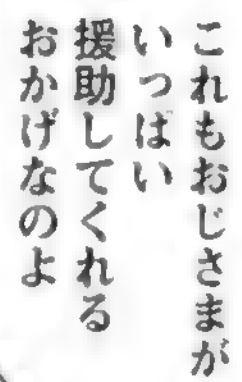 これもおじさまが
いっぱい
援助してくれる
おかげなのよ